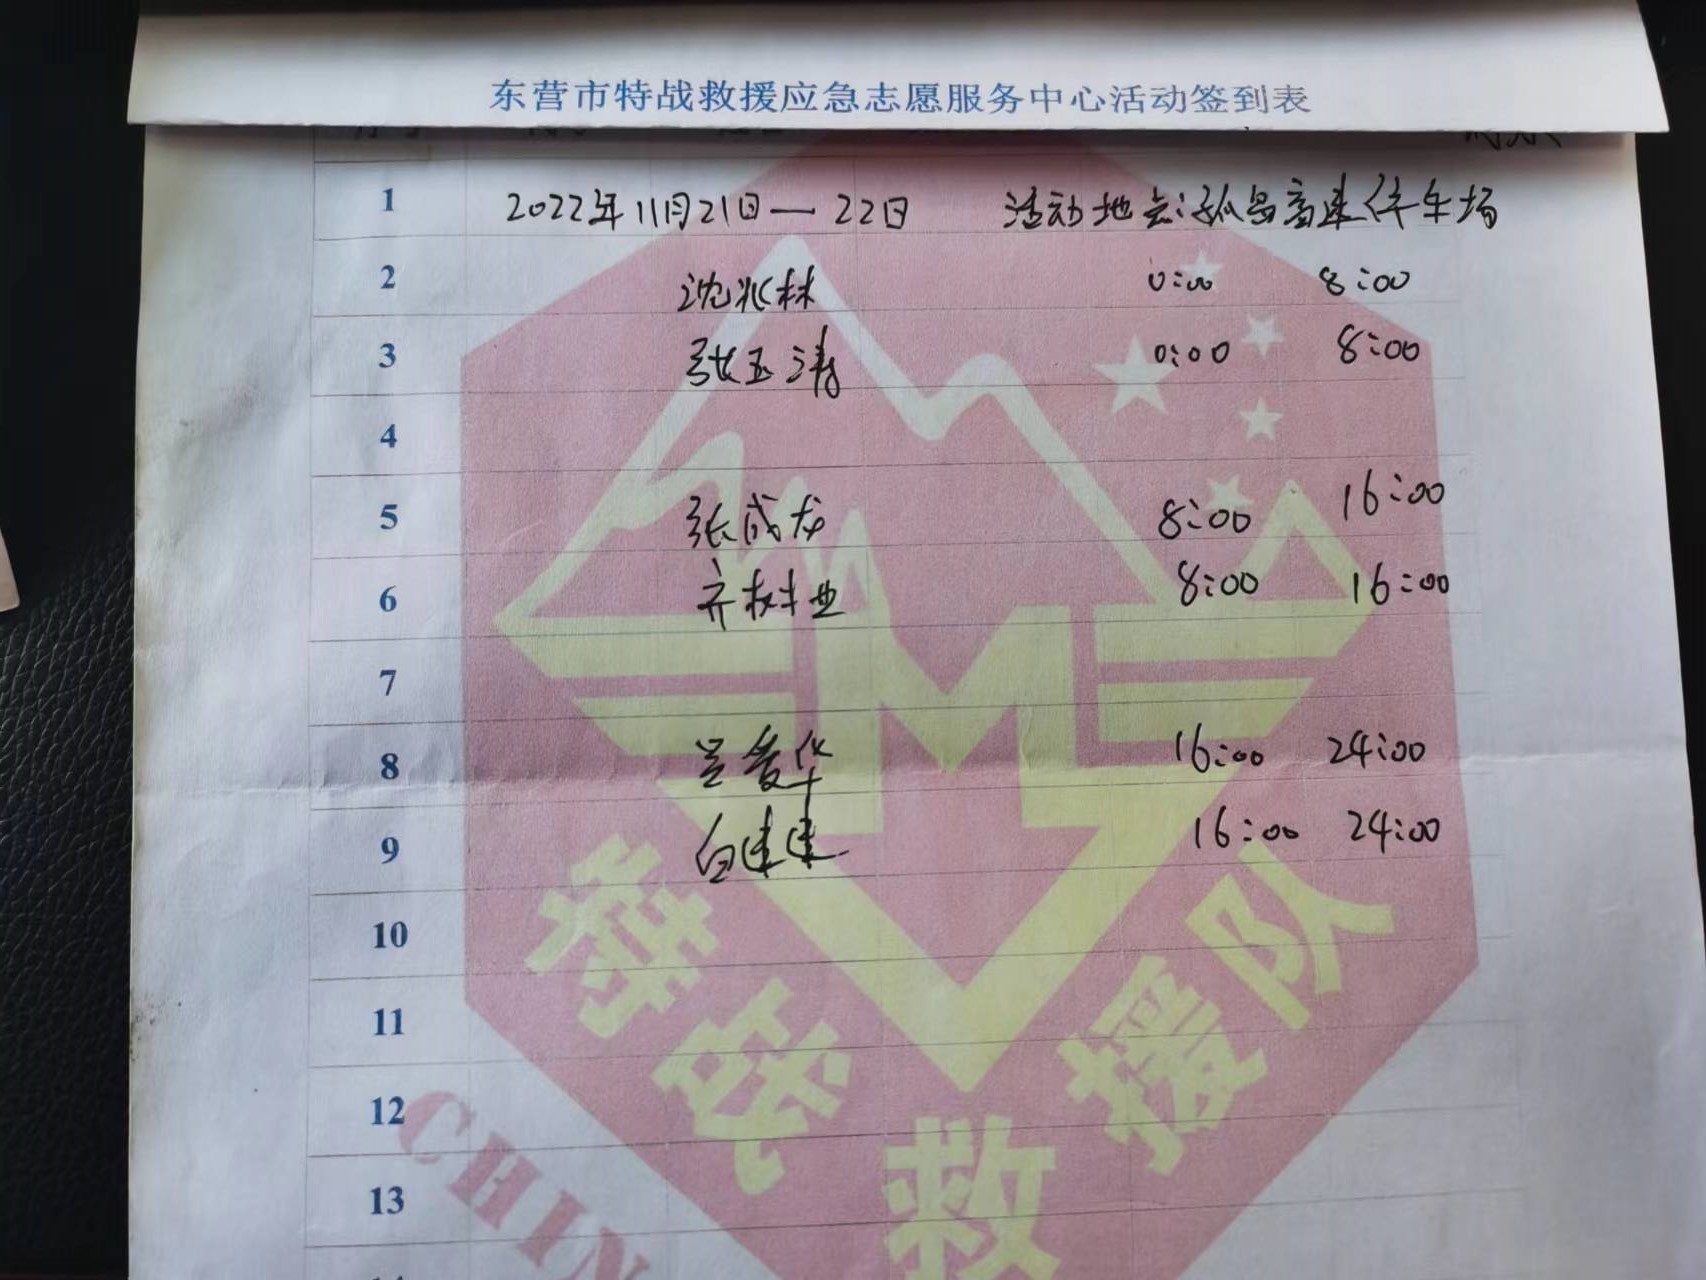 东营市特战救援应急志愿服务中心活动签到表
1 2022年11月21日—22日 活动地点:孤岛高速停车场
2 沈兆林 0:00 8:00
3 张玉涛 0:00 8:00
4
5 张成龙 8:00 16:00
6 齐树业 8:00 16:00
7
8 吴爱华 16:00 24:00
9 白建建 16:00 24:00
10
11
12
13
特战救援队
CHIN